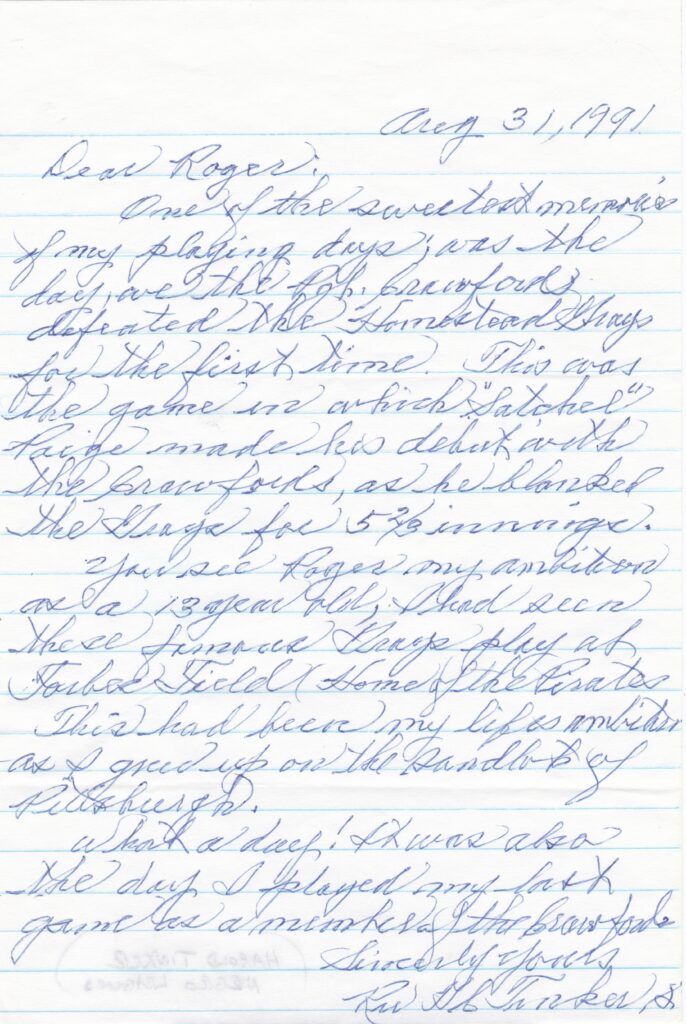 Aug 31, 1991
Dear Roger:
One of the sweetest memories
of my playing days; was the
day, we the Pgh. Crawfords
defeated the Homestead Grays
for the first time. This was
the game in which "Satchel"
Paige made his debut with
the Crawfords, as he blanked
the Grays for 5 2/3 innings.
You see Roger my ambition
as a 13 year old, I had seen
these famous Grays play at
Forbes Field (Home of the Pirates
This had been my lifes ambition
as I grew up on the sandlots of
Pittsburgh.
What a day! It was also
the day I played my last
game as a member of the Crawfords
Sincerely Yours
Rev Tinker, Sr
(HAROLD TINKER
NEGRO LEAGUES)